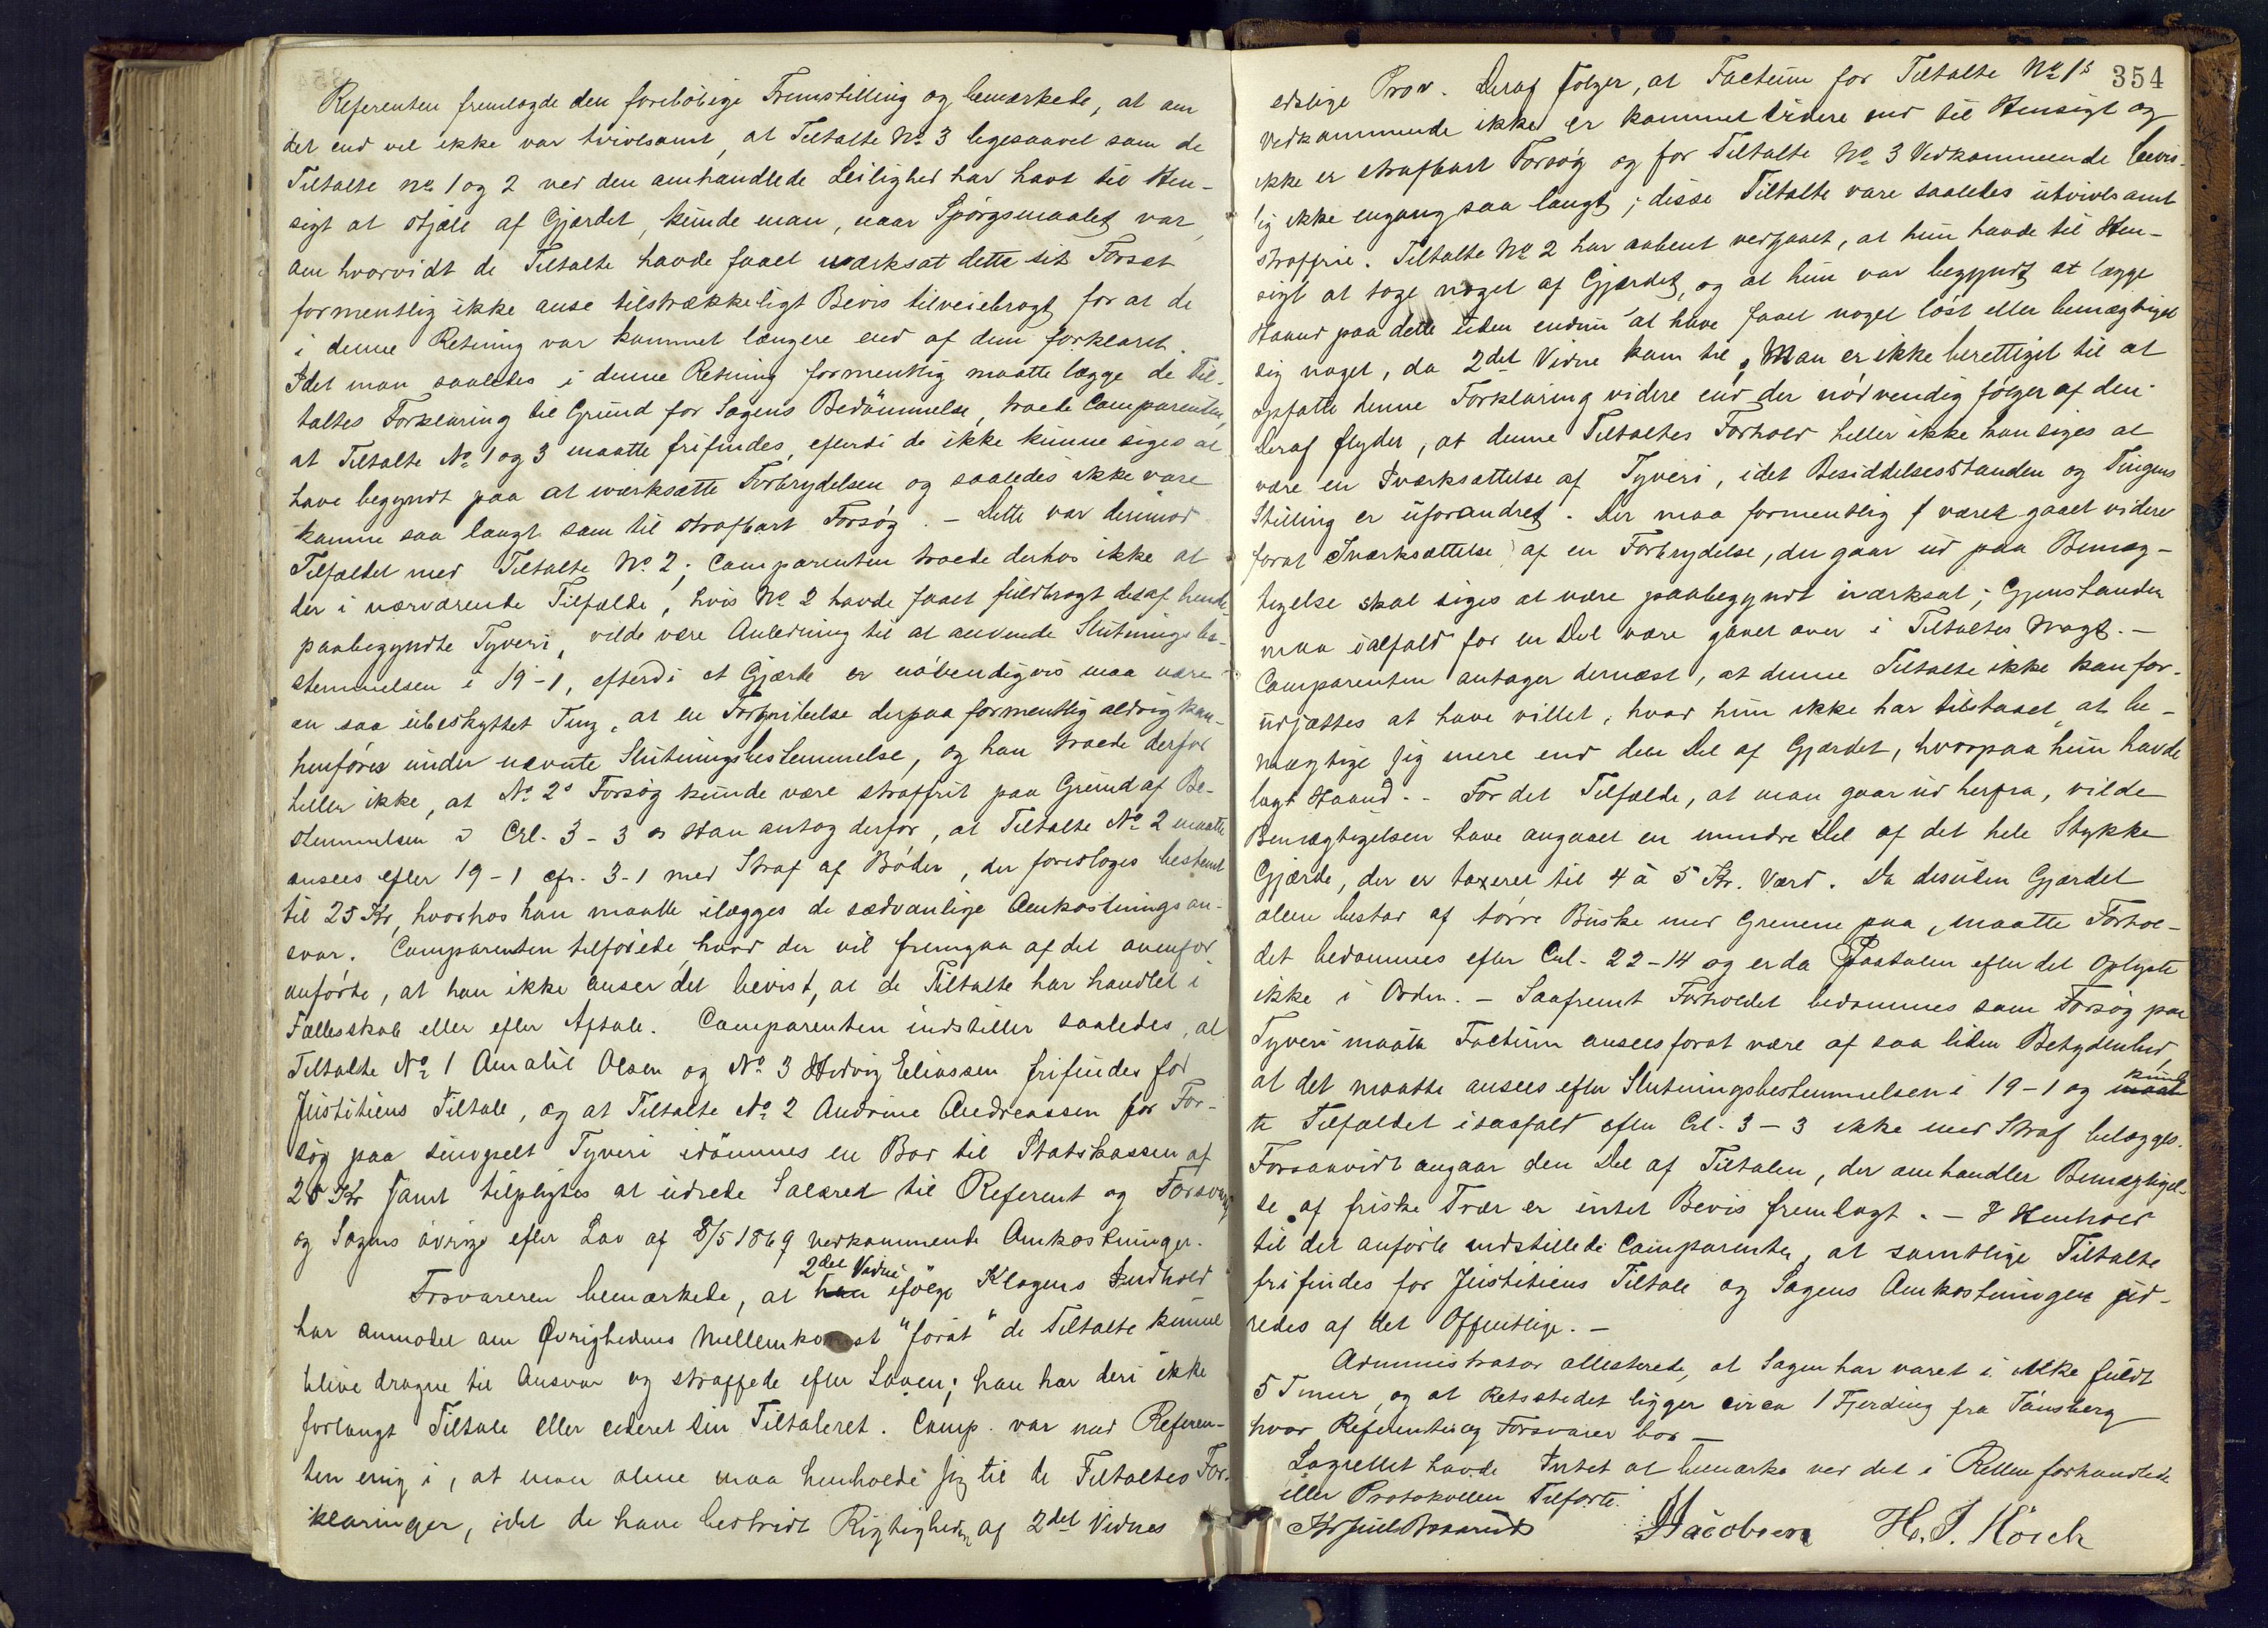 Referenten fremlagde den foreløbige Fremstilling og bemærkede, at om
det end vel ikke var tvivlsomt, at Tiltalte No 3 ligesaavel som de
Tiltalte No 1 og 2 ved den omhandlede Leilighed har havt til Hen-
sigt at stjæle af Gjærdet, kunde man, naar Spørgsmaalet var,
om hvorvidt de Tiltalte havde faaet iværksat dette sit Forsæt
formentlig ikke anse tilstrækkeligt Bevis tilveiebragt for at de
i denne Retning var kommet længere end af dem forklaret.
Idet man saaledes i denne Retning formentlig maatte lægge de Til-
taltes Forklaring til Grund for Sagens Bedømmelse, troede Comparenten,
at Tiltalte No 1 og 3 maatte frifindes, efterdi de ikke kunne siges at
have begyndt paa at iværksætte Forbrydelsen og saaledes ikke være
komne saa langt som til strafbart Forsøg. - Dette var derimod
Tilfældet med Tiltalte No 2; Comparenten troede derhos ikke at
der i nærværende Tilfælde, hvis No 2 havde faaet fuldbragt det af hende
paabegyndte Tyveri, vilde være Anledning til at anvende Slutningsbe-
stemmelsen i 19-1, efterdi et Gjærde er nødvendigvis maa være
en saa ubeskyttet Ting, at en Forgribelse derpaa formentlig aldrig kan
henføres under nævnte Slutningsbestemmelse, og han troede derfor
heller ikke, at No 2s Forsøg kunde være straffrit paa Grund af Be-
stemmelsen i Crl. 3-3. Han antog derfor, at Tiltalte No 2 maatte
ansees efter 19-1 cfr. 3-1 med Straf af Bøder, der foresloges bestemt
til 25 Kr, hvorhos hun maatte ilægges de sædvanlige Omkostningsan-
svar. Comparenten tilføiede, hvad der vil fremgaa af det ovenfor
anførte, at han ikke anser det bevist, at de Tiltalte har handlet i
Fællesskab eller efter Aftale. Comparenten indstiller saaledes, at
Tiltalte No 1 Amalie Olsen og No 3 Hedvig Eliassen frifindes for
Justitiens Tiltale, og at Tiltalte No 2 Andrine Andreassen for For-
søg paa simpelt Tyveri idømmes en Bod til Statskassen af
25 Kr samt tilpligtes at udrede Salæret til Referent og Forsvarer
og Sagens øvrige efter Lov af 8/5 1869 vedkommende Omkostninger.
Forsvareren bemærkede, at han 2det Vidne ifølge Klagens Indhold
har anmodet om Øvrighedens Mellemkomst "forat" de Tiltalte kunne
blive dragne til Ansvar og straffede efter Loven; han har deri ikke
forlangt Tiltale eller cederet sin Tiltaleret. Comp. var med Referen-
ten enig i, at man alene maa henholde sig til de Tiltaltes For-
klaringer, idet de have bestridt Rigtigheden af 2det Vidnes
354
edelige Prov. Deraf følger, at Factum for Tiltalte No 1s
Vedkommende ikke er kommet videre end til Hensigt og
ikke er strafbart Forsøg og for Tiltalte No 3 Vedkommende bevis-
lig ikke engang saa langt; disse Tiltalte vare saaledes utvivlsomt
straffrie. Tiltalte No 2 har aabent vedgaaet, at hun havde til Hen-
sigt at tage noget af Gjærdet, og at hun var begyndt at lægge
Haand paa dette uden endnu at have faaet noget løst eller bemægtiget
sig noget, da 2det Vidne kom til. Man er ikke berettiget til at
opfatte denne Forklaring videre end der nødvendig følger af den.
Deraf flyder, at denne Tiltaltes Forhold heller ikke kan siges at
være en Iværksættelse af Tyveri, idet Besiddelsesstanden og Tingens
Stilling er uforandret. Der maa formentlig være gaaet videre
forat Iværksættelse af en Forbrydelse, der gaar ud paa Bemæg-
tigelse skal siges at være paabegyndt iværksat; Gjenstanden
maa ialfald for en Del være gaaet over i Tiltaltes Magt. -
Comparenten antager dernæst, at denne Tiltalte ikke kan for-
udsættes at have villet, hvad hun ikke har tilstaaet, at be-
mægtige sig mere end den Del af Gjærdet, hvorpaa hun havde
lagt Haand. - For det Tilfælde, at man gaar ud herfra, vilde
Bemægtigelsen have angaaet en mindre Del af det hele Stykke
Gjærde, der er taxeret til 4 à 5 Kr. Værd. Da desuden Gjærdet
alene bestod af tørre Buske med Grenene paa, maatte Forhol-
det bedømmes efter Crl. 22-14 og er da Paatalen efter det Oplyste
ikke i Orden. - Saafremt Forholdet bedømmes som Forsøg paa
Tyveri maatte Factum ansees forat være af saa liden Betydenhed,
at det maatte ansees efter Slutningsbestemmelsen i 19-1 og maat kund-
te Tilfældet isaafald efter Crl. 3-3 ikke med Straf belægges.
Forsaavidt angaar den Del af Tiltalen, der omhandler Bemægtigel-
se af friske Trær er intet Bevis fremlagt. - I Henhold
til det anførte indstillede Comparenten, at samtlige Tiltalte
frifindes for Justitiens Tiltale og Sagens Omkostninger ud-
redes af det Offentlige. -
Administrator attesterede, at Sagen har varet i ikke fuldt
5 Timer, og at Retsstedet ligger circa 1 Fjerding fra Tønsberg
hvor Referenten og Forsvarer bor -
Lagrettet havde Intet at bemærke ved det i Retten forhandlede
eller Protokollen Tilførte.
Jacobsen H. J. Hörch